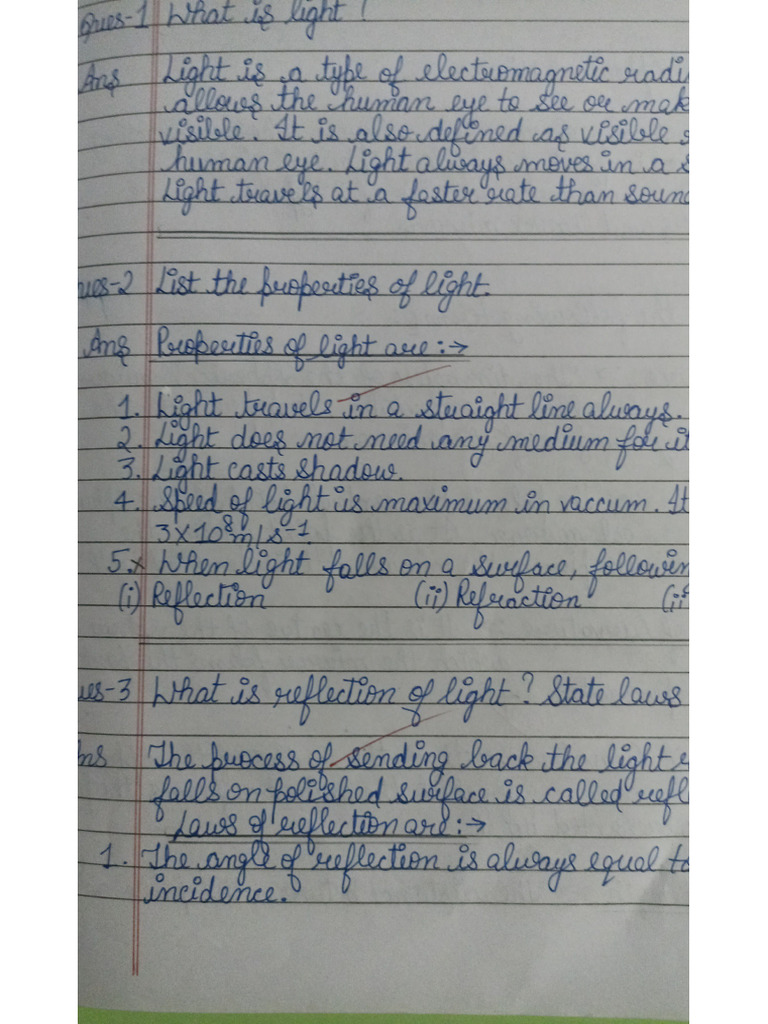 Ques-1 What is light?
Ans Light is a type of electromagnetic radi
allows the human eye to see or mak
visible. It is also defined as visible
human eye. Light always moves in a s
Light travels at a faster rate than soun
ues-2 List the properties of light.
Ans Properties of light are:→
1. Light travels in a straight line always.
2. Light does not need any medium for it
3. Light casts shadow.
4. Speed of light is maximum in vaccum. It
3×10⁸m/s⁻¹.
5.× When light falls on a surface, followin
(i) Reflection (ii) Refraction (ii
ues-3 What is reflection of light? State laws
ns The process of sending back the light
falls on polished surface is called refl
Laws of reflection are:→
1. The angle of reflection is always equal to
incidence.